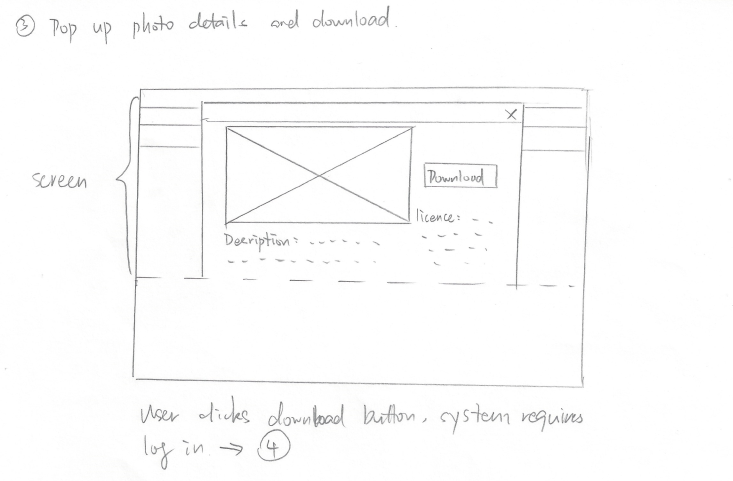 ③ Pop up photo details and download.
X
screen
Download
licence:
Decription:
User clicks download button, system requires
log in. → ④